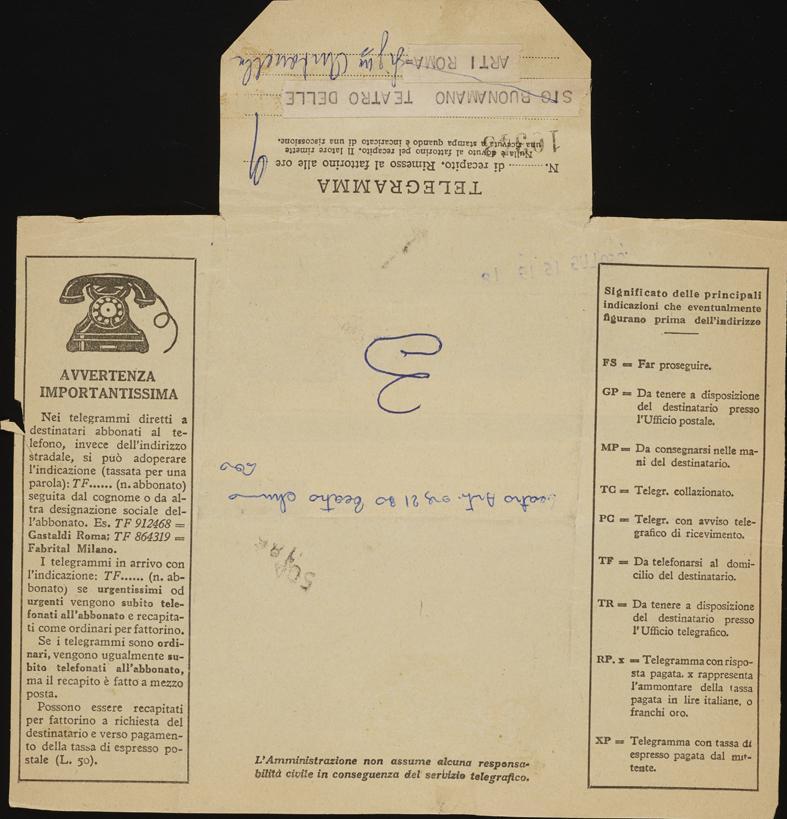 TELEGRAMMA
N. ........ di recapito. Rimesso al fattorino alle ore
Nulla è dovuto al fattorino pel recapito. Il latore rimette
una ricevuta a stampa quando è incaricato di una riscossione.
SIG BUONAMANO TEATRO DELLE
ARTI ROMA=
AVVERTENZA
IMPORTANTISSIMA
Nei telegrammi diretti a
destinatari abbonati al te-
lefono, invece dell'indirizzo
stradale, si può adoperare
l'indicazione (tassata per una
parola): TF...... (n. abbonato)
seguita dal cognome o da al-
tra designazione sociale del-
l'abbonato. Es. TF 912468 =
Gastaldi Roma; TF 864319 =
Fabrital Milano.
I telegrammi in arrivo con
l'indicazione: TF...... (n. ab-
bonato) se urgentissimi od
urgenti vengono subito tele-
fonati all'abbonato e recapita-
ti come ordinari per fattorino.
Se i telegrammi sono ordi-
nari, vengono ugualmente su-
bito telefonati all'abbonato,
ma il recapito è fatto a mezzo
posta.
Possono essere recapitati
per fattorino a richiesta del
destinatario e verso pagamen-
to della tassa di espresso po-
stale (L. 50).
ore 21 30 teatro
L'Amministrazione non assume alcuna responsa-
bilità civile in conseguenza del servizio telegrafico.
Significato delle principali
indicazioni che eventualmente
figurano prima dell'indirizzo
FS = Far proseguire.
GP = Da tenere a disposizione
del destinatario presso
l'Ufficio postale.
MP = Da consegnarsi nelle ma-
ni del destinatario.
TC = Telegr. collazionato.
PC = Telegr. con avviso tele-
grafico di ricevimento.
TF = Da telefonarsi al domi-
cilio del destinatario.
TR = Da tenere a disposizione
del destinatario presso
l'Ufficio telegrafico.
RP. x = Telegramma con rispo-
sta pagata. x rappresenta
l'ammontare della tassa
pagata in lire italiane, o
franchi oro.
XP = Telegramma con tassa di
espresso pagata dal mit-
tente.